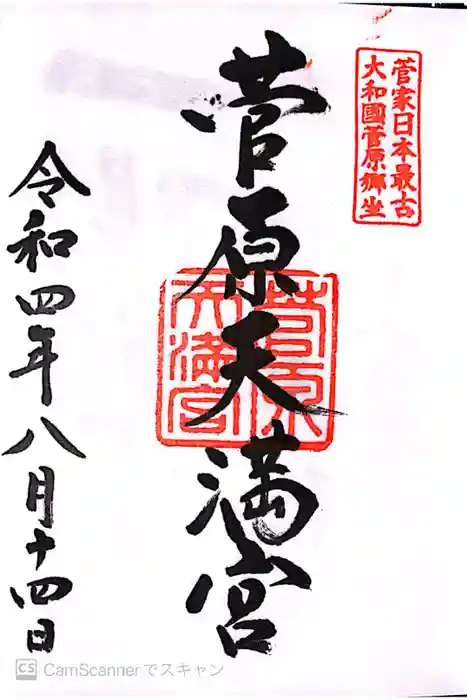 菅家日本最古
大和國菅原郷坐
菅原天満宮
菅原
天満宮
令和四年八月十四日
CS CamScannerでスキャン